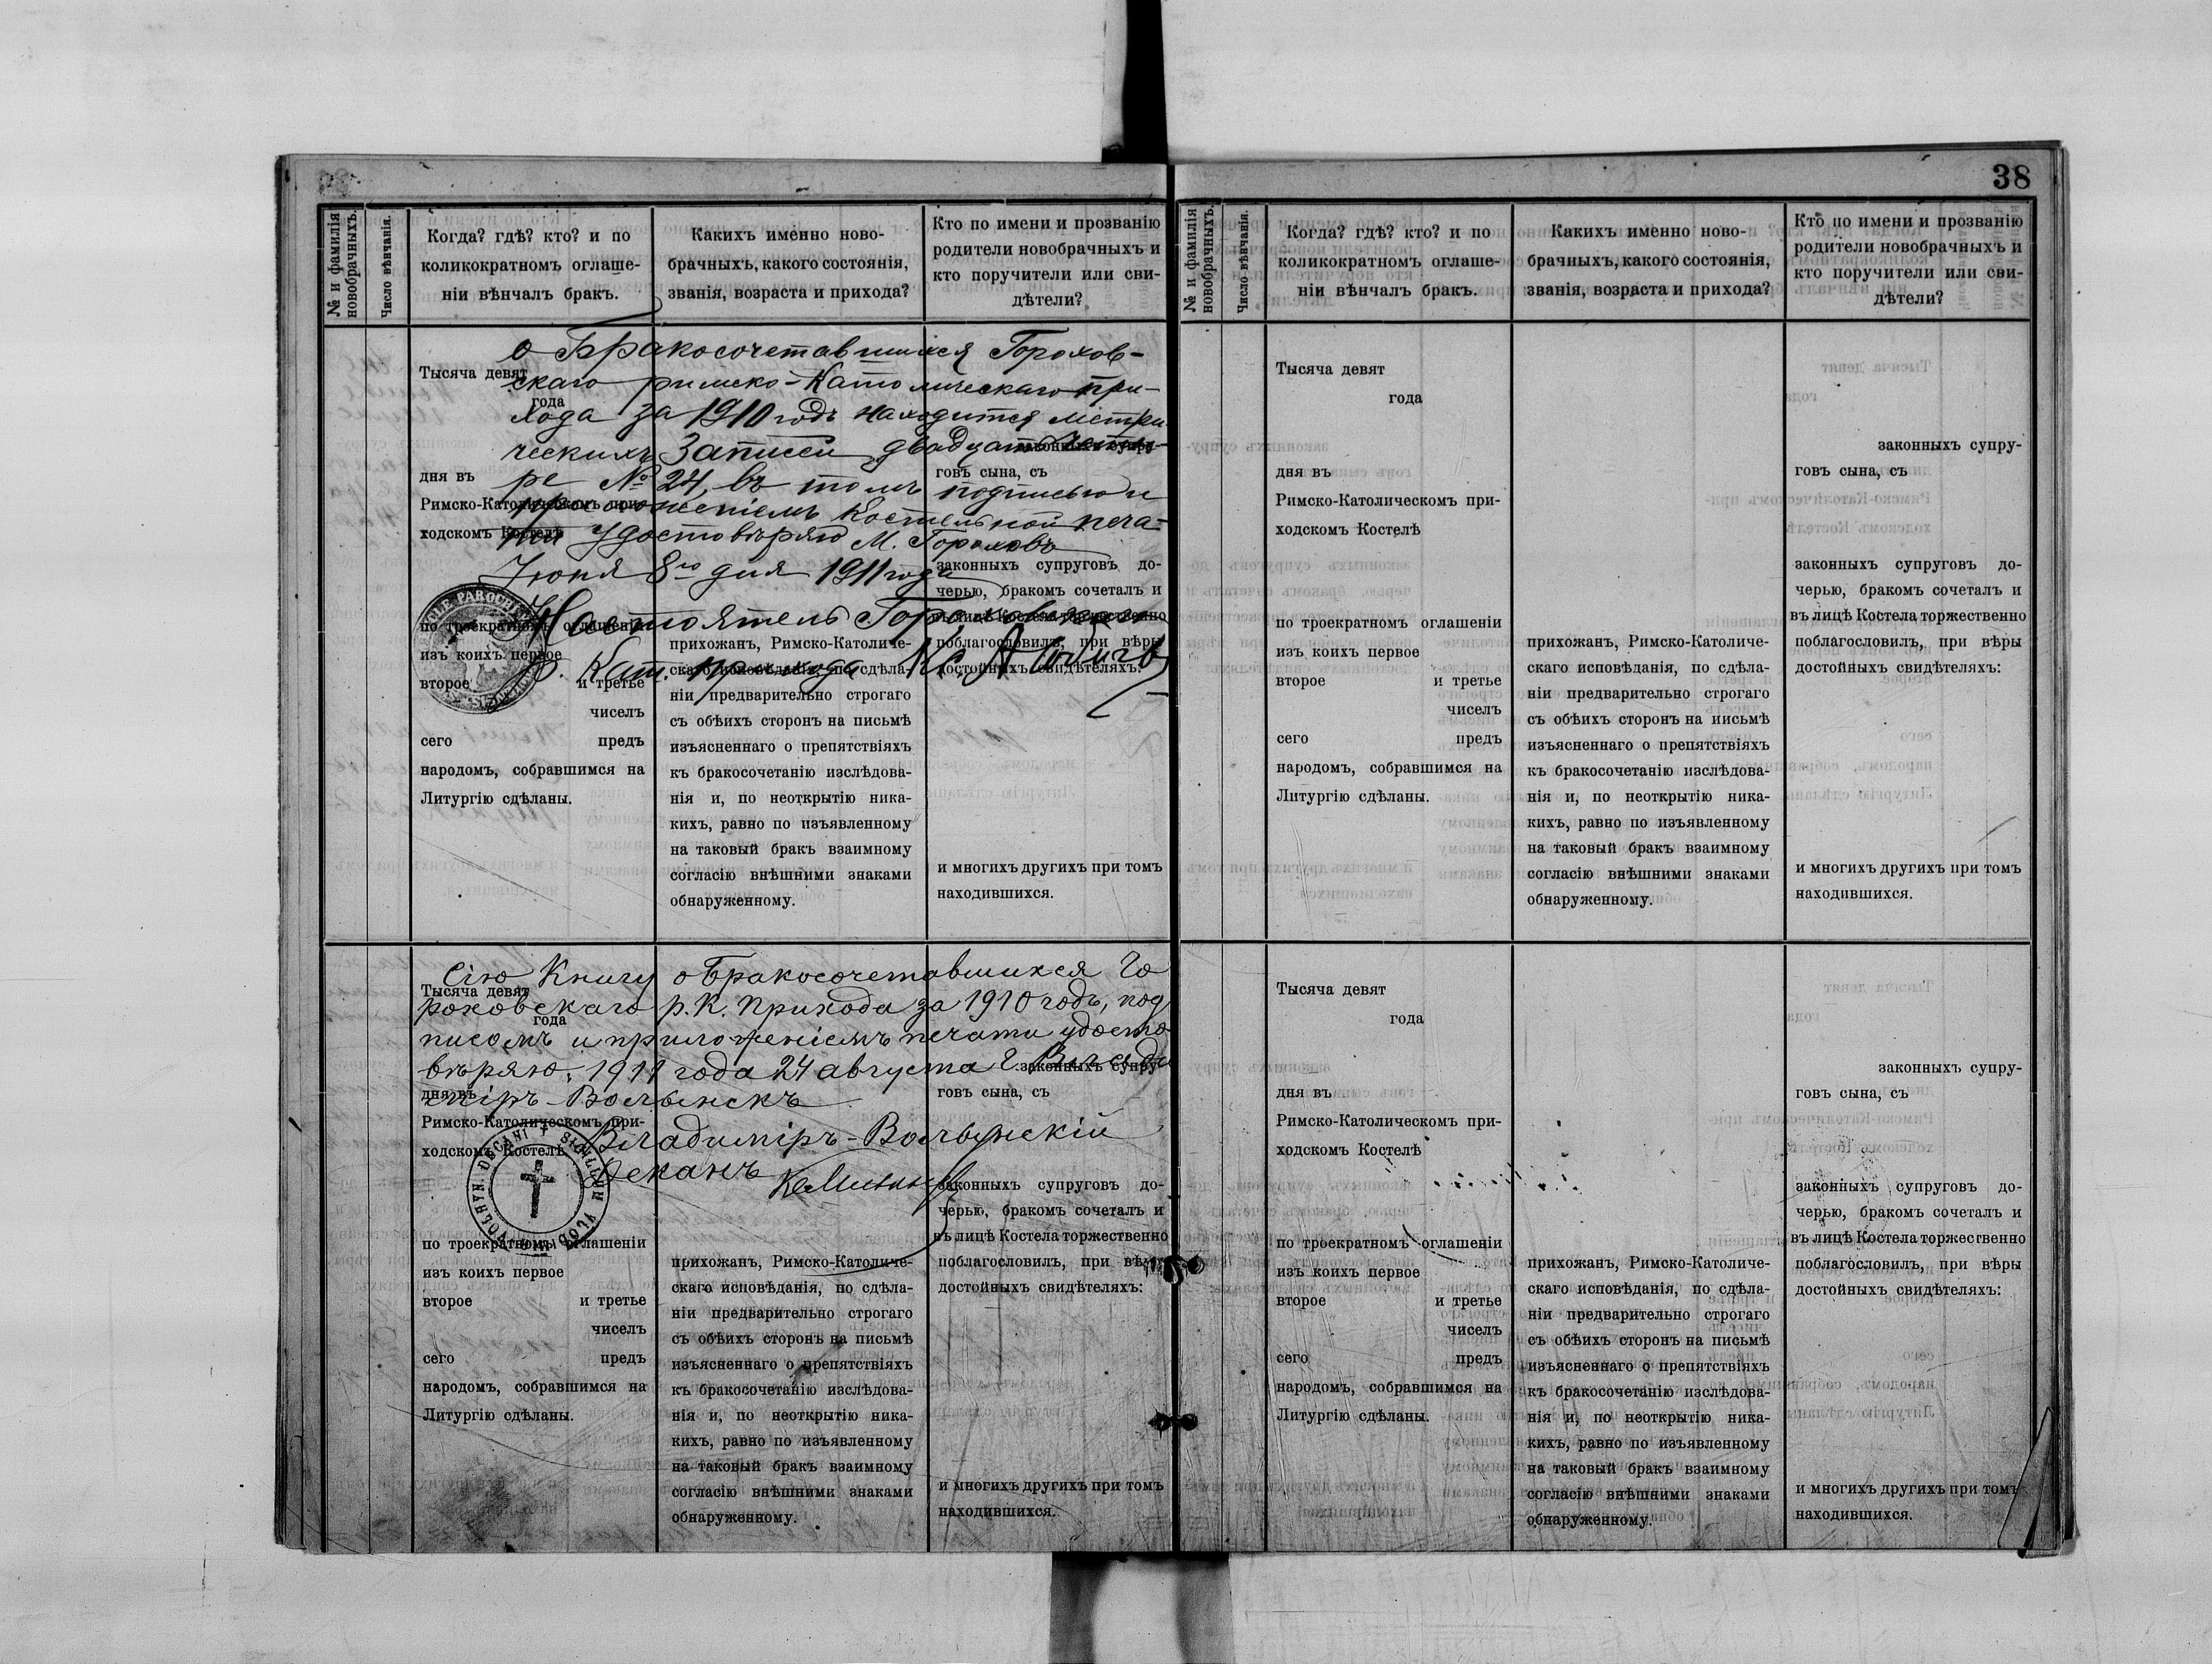 38
№ и фамилія новобрачныхъ.
Число вѣнчанія.
Когда? гдѣ? кто? и по
коликократномъ оглаше-
ніи вѣнчалъ бракъ.
Какихъ именно ново-
брачныхъ, какого состоянія,
званія, возраста и прихода?
Кто по имени и прозванію
родители новобрачныхъ и
кто поручители или сви-
дѣтели?
о Бракосочетавшихся Горохов-
скаго римско-Католическаго при-
хода за 1910 годъ находится метри
ческихъ Записей двадцать четы-
ре № 24, въ томъ подписью и
приложеніемъ Костельной печа-
ти удостовѣряю М. Гороховъ
Іюня 8го дня 1911 года
Настоятель Гороховскаго
Р. Кат. прихода Кс.
Тысяча девят
года
дня въ
Римско-Католическомъ при-
ходскомъ Костелѣ
по троекратномъ оглашеніи
изъ коихъ первое
второе и третье
чиселъ
сего предъ
народомъ, собравшимся на
Литургію сдѣланы.
прихожанъ, Римско-Католиче-
скаго исповѣданія, по сдѣла-
ніи предварительно строгаго
съ обѣихъ сторонъ на письмѣ
изъясненнаго о препятствіяхъ
къ бракосочетанію изслѣдова-
нія и, по неоткрытію ника-
кихъ, равно по изъявленному
на таковый бракъ взаимному
согласію внѣшними знаками
обнаруженному.
законныхъ супру-
говъ сына, съ
законныхъ супруговъ до-
черью, бракомъ сочеталъ и
въ лицѣ Костела торжественно
поблагословилъ, при вѣры
достойныхъ свидѣтеляхъ:
и многихъ другихъ при томъ
находившихся.
Сію Книгу о Бракосочетавшихся Го
роховскаго р. К. Прихода за 1910 годъ, под
писомъ и приложеніемъ печати удосто
вѣряю. 1911 года 24 августа г. Влади
міръ-Волынскъ
Владиміръ-Волынскій
Деканъ
SIGILLUM VLODIMIR. VOLHYN. DECANI
Тысяча девят
года
дня въ
Римско-Католическомъ при-
ходскомъ Костелѣ
по троекратномъ оглашеніи
изъ коихъ первое
второе и третье
чиселъ
сего предъ
народомъ, собравшимся на
Литургію сдѣланы.
прихожанъ, Римско-Католиче-
скаго исповѣданія, по сдѣла-
ніи предварительно строгаго
съ обѣихъ сторонъ на письмѣ
изъясненнаго о препятствіяхъ
къ бракосочетанію изслѣдова-
нія и, по неоткрытію ника-
кихъ, равно по изъявленному
на таковый бракъ взаимному
согласію внѣшними знаками
обнаруженному.
законныхъ супру-
говъ сына, съ
законныхъ супруговъ до-
черью, бракомъ сочеталъ и
въ лицѣ Костела торжественно
поблагословилъ, при вѣры
достойныхъ свидѣтеляхъ:
и многихъ другихъ при томъ
находившихся.
№ и фамилія новобрачныхъ.
Число вѣнчанія.
Когда? гдѣ? кто? и по
коликократномъ оглаше-
ніи вѣнчалъ бракъ.
Какихъ именно ново-
брачныхъ, какого состоянія,
званія, возраста и прихода?
Кто по имени и прозванію
родители новобрачныхъ и
кто поручители или сви-
дѣтели?
Тысяча девят
года
дня въ
Римско-Католическомъ при-
ходскомъ Костелѣ
по троекратномъ оглашеніи
изъ коихъ первое
второе и третье
чиселъ
сего предъ
народомъ, собравшимся на
Литургію сдѣланы.
прихожанъ, Римско-Католиче-
скаго исповѣданія, по сдѣла-
ніи предварительно строгаго
съ обѣихъ сторонъ на письмѣ
изъясненнаго о препятствіяхъ
къ бракосочетанію изслѣдова-
нія и, по неоткрытію ника-
кихъ, равно по изъявленному
на таковый бракъ взаимному
согласію внѣшними знаками
обнаруженному.
законныхъ супру-
говъ сына, съ
законныхъ супруговъ до-
черью, бракомъ сочеталъ и
въ лицѣ Костела торжественно
поблагословилъ, при вѣры
достойныхъ свидѣтеляхъ:
и многихъ другихъ при томъ
находившихся.
Тысяча девят
года
дня въ
Римско-Католическомъ при-
ходскомъ Костелѣ
по троекратномъ оглашеніи
изъ коихъ первое
второе и третье
чиселъ
сего предъ
народомъ, собравшимся на
Литургію сдѣланы.
прихожанъ, Римско-Католиче-
скаго исповѣданія, по сдѣла-
ніи предварительно строгаго
съ обѣихъ сторонъ на письмѣ
изъясненнаго о препятствіяхъ
къ бракосочетанію изслѣдова-
нія и, по неоткрытію ника-
кихъ, равно по изъявленному
на таковый бракъ взаимному
согласію внѣшними знаками
обнаруженному.
законныхъ супру-
говъ сына, съ
законныхъ супруговъ до-
черью, бракомъ сочеталъ и
въ лицѣ Костела торжественно
поблагословилъ, при вѣры
достойныхъ свидѣтеляхъ:
и многихъ другихъ при томъ
находившихся.